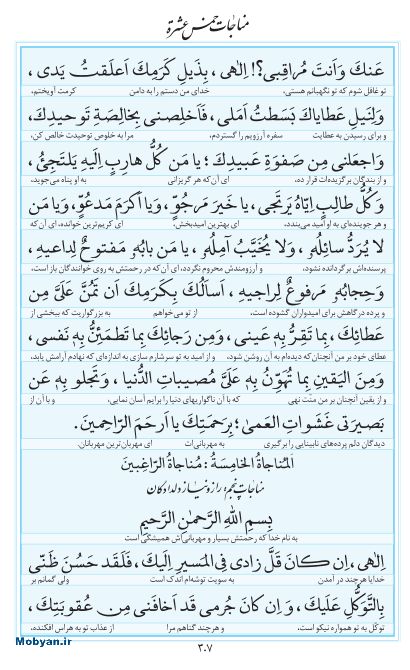 مناجات خمس عشرة
عَنكَ وَاَنتَ مُراقِبی؟! اِلٰهی، بِذَیلِ كَرَمِكَ اَعلَقتُ یَدی،
تو غافل شوم که تو نگهبانم هستی، خدای من دستم را به دامن کرمت آویختم،
وَلِنَیلِ عَطایاكَ بَسَطتُ اَمَلی، فَاَخلِصنی بِخالِصَةِ تَوحیدِكَ،
و برای رسیدن به عطایت سفره آرزویم را گستردم، مرا به خلوص توحیدت خالص کن،
وَاجعَلنی مِن صَفوَةِ عَبیدِكَ؛ یا مَن كُلُّ هارِبٍ اِلَیهِ یَلتَجِئُ،
و از بندگان برگزیده‌ات قرار ده، ای آن‌که هر گریزانی به او پناه می‌جوید،
وَكُلُّ طالِبٍ اِیّاهُ یَرتَجی، یا خَیرَ مَرجُوٍّ، وَیا اَكرَمَ مَدعُوٍّ، وَیا مَن
و هر جوینده‌ای به او امید می‌بندد، ای بهترین امیدبخش، ای کریم‌ترین خوانده، ای آن که
لا یُرَدُّ سائِلُهُ، وَلا یُخَیَّبُ آمِلُهُ، یا مَن بابُهُ مَفتوحٌ لِداعیهِ،
پرسنده‌اش برگردانده نشود، و آرزومندش محروم نگردد، ای آن‌که در رحمتش به روی خوانندگان باز است،
وَحِجابُهُ مَرفوعٌ لِراجیهِ، اَساَلُكَ بِكَرَمِكَ اَن تَمُنَّ عَلَیَّ مِن
و پرده درگاهش برای امیدواران گشوده است، از تو می‌خواهم به بزرگواریت که ببخشی از
عَطائِكَ، بِما تَقِرُّ بِهِ عَینی، وَمِن رَجائِكَ بِما تَطمَئِنُّ بِهِ نَفسی،
عطای خود بر من آنچنان‌که دیده‌ام به آن روشن شود، و از امید به تو سرشارم سازی به اندازه‌ای که نهادم آرامش یابد،
وَمِنَ الیَقینِ بِما تُهَوِّنُ بِهِ عَلَیَّ مُصیباتِ الدُّنیا، وَتَجلو بِهِ عَن
و از یقین آنچنان بر من منّت نهی که با آن ناگواریهای دنیا را برایم آسان نمایی، و با آن از
بَصیرَتی غَشَواتِ العَمیٰ؛ بِرَحمَتِكَ یا اَرحَمَ الرّاحِمینَ.
دیدگان دلم پرده‌های نابینایی را برگیری به مهربانی‌ات ای مهربان‌ترین مهربانان.
اَلمُناجاةُ الخامِسَةُ: مُناجاةُ الرّاغِبینَ
مناجات پنجم: راز و نیاز دلدادگان
بِسمِ اللهِ الرَّحمٰنِ الرَّحیمِ
به نام خدا که رحمتش بسیار و مهربانی‌اش همیشگی است
اِلٰهی، اِن كانَ قَلَّ زادی فِی المَسیرِ اِلَیكَ، فَلَقَد حَسُنَ ظَنّی
خدایا هرچند در آمدن به سویت توشه‌ام اندک است ولی گمانم بر
بِالتَّوَكُّلِ عَلَیكَ، وَاِن كانَ جُرمی قَد اَخافَنی مِن عُقوبَتِكَ،
توکّل به تو همواره نیکو است، و هرچند گناهم مرا از عذاب تو به هراس افکنده،
۳۰۷
Mobyan.ir